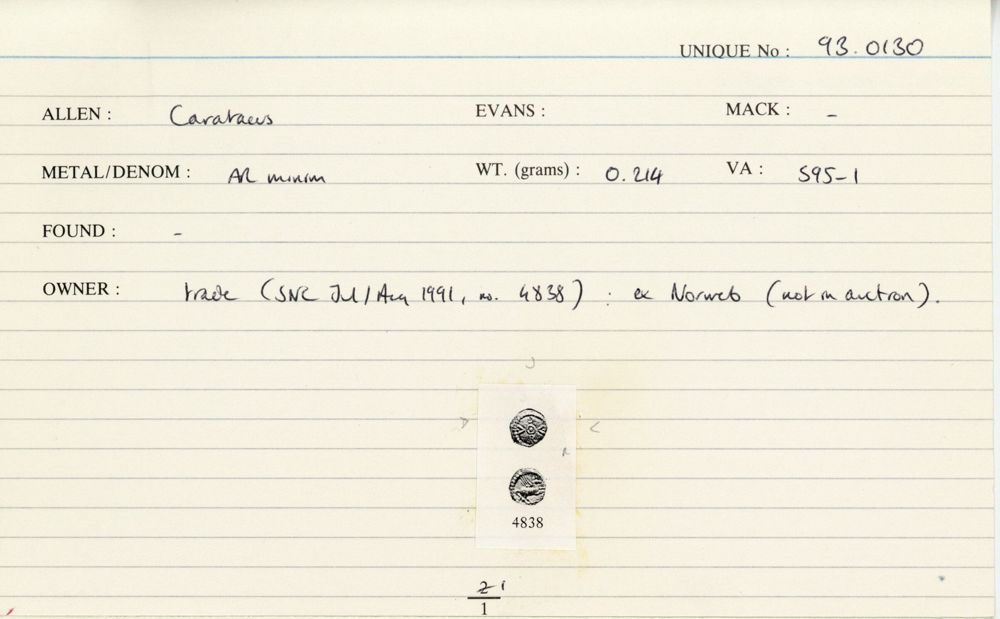 UNIQUE No : 93.0130
ALLEN : Carataeus EVANS : MACK : -
METAL/DENOM : AR minim WT. (grams) : 0.214 VA : 595-1
FOUND : -
OWNER : trade (SNC Jul/Aug 1991, no. 4838) : ex Norweb (not in auction).
4838
1